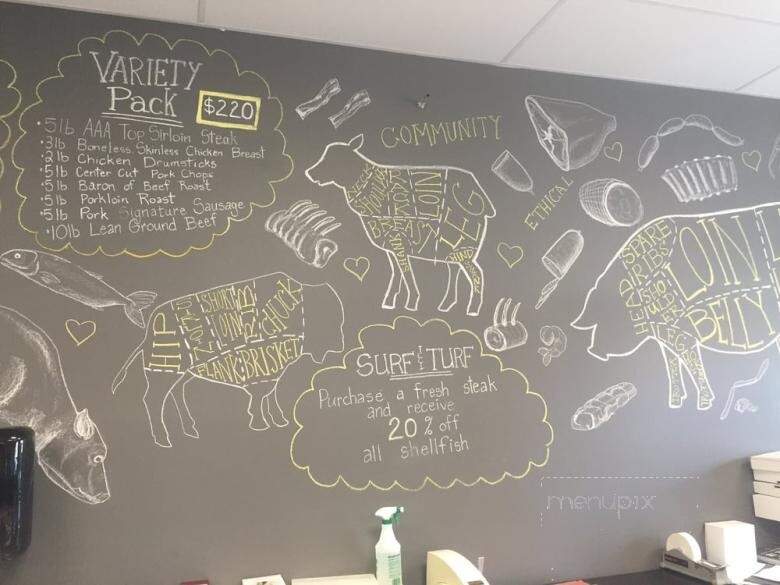 VARIETY
Pack
$220
• 5lb AAA Top Sirloin Steak
• 3lb Boneless Skinless Chicken Breast
• 2lb Chicken Drumsticks
• 5lb Center Cut Pork Chops
• 5lb Baron of Beef Roast
• 5lb Porkloin Roast
• 5lb Pork Signature Sausage
• 10lb Lean Ground Beef
COMMUNITY
ETHICAL
NECK
SHOULDER
RACK
LOIN
LEG
BREAST
SHANK
HIND
HIP
SHORT
LOIN
RIB
CHUCK
FLANK
BRISKET
SPARE
RIBS
HEAD
SHOULDER
LOIN
BELLY
LEG
SURF & TURF
Purchase a fresh steak
and receive
20% off
all shellfish
menupix